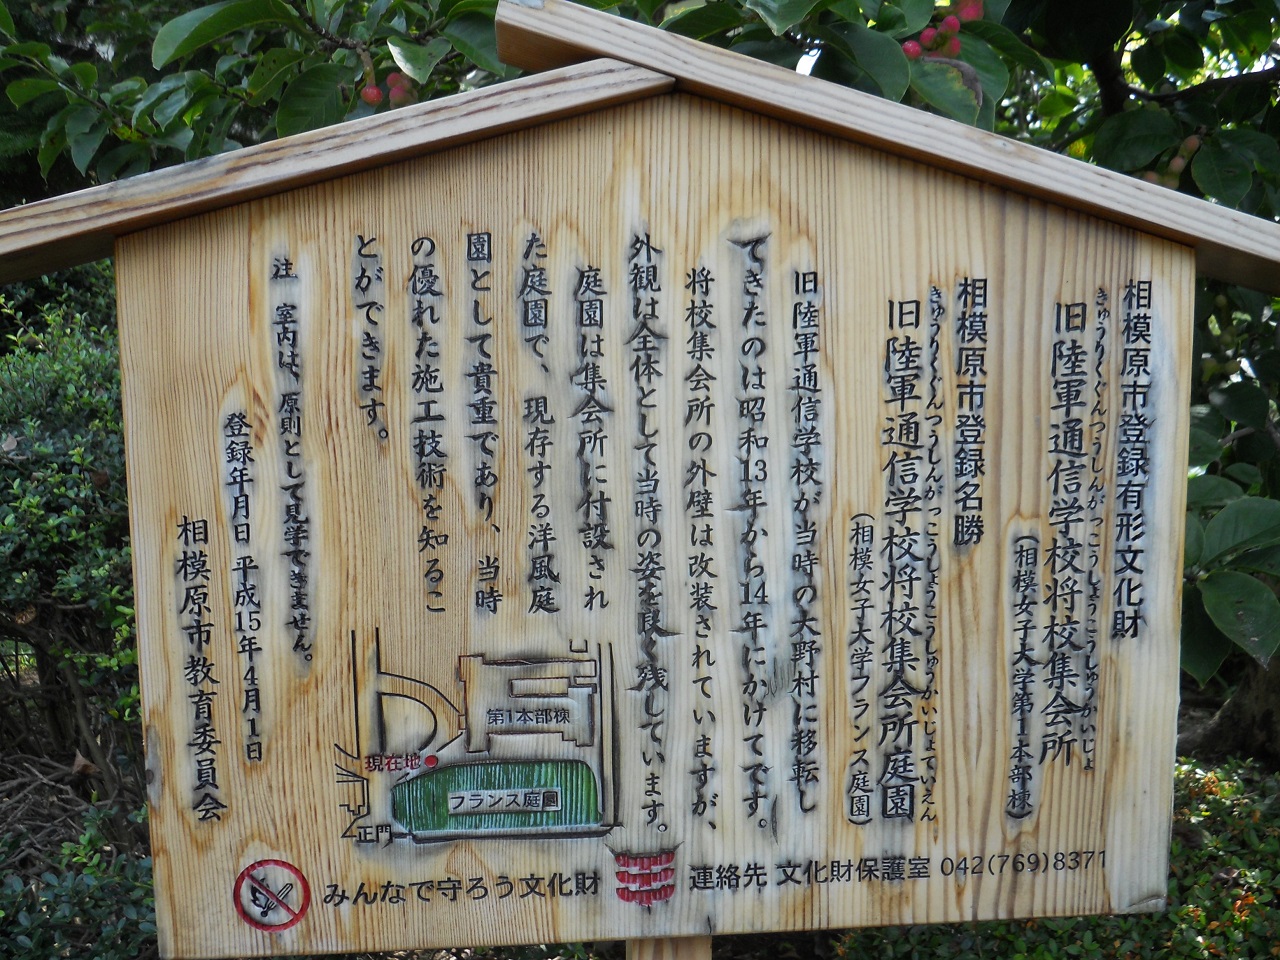 相模原市登録有形文化財
きゅうりくぐんつうしんがっこうしょうこうしゅうかいじょ
旧陸軍通信学校将校集会所
（相模女子大学第1本部棟）
相模原市登録名勝
きゅうりくぐんつうしんがっこうしょうこうしゅうかいじょていえん
旧陸軍通信学校将校集会所庭園
（相模女子大学フランス庭園）
旧陸軍通信学校が当時の大野村に移転し
てきたのは昭和13年から14年にかけてです。
将校集会所の外壁は改装されていますが、
外観は全体として当時の姿を良く残しています。
庭園は集会所に付設され
た庭園で、現存する洋風庭
園として貴重であり、当時
の優れた施工技術を知るこ
とができます。
注 室内は、原則として見学できません。
登録年月日 平成15年4月1日
相模原市教育委員会
第1本部棟
現在地
フランス庭園
正門
みんなで守ろう文化財
連絡先 文化財保護室 042(769)8371